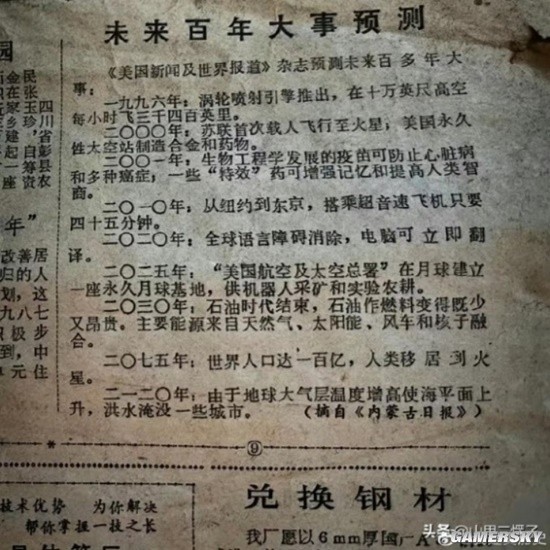 未来百年大事预测
《美国新闻及世界报道》杂志预测未来百多年大
事：
一九九六年：涡轮喷射引擎推出，在十万英尺高空
每小时飞三千四百英里。
二〇〇〇年：苏联首次载人飞行至火星；美国永久
性太空站制造合金和药物。
二〇〇一年：生物工程学发展的疫苗可防止心脏病
和多种癌症；一些“特效”药可增强记忆和提高人类智
商。
二〇一〇年：从纽约到东京，搭乘超音速飞机只要
四十五分钟。
二〇二〇年：全球语言障碍消除，电脑可立即翻
译。
二〇二五年：“美国航空及太空总署”在月球建立
一座永久月球基地，供机器人采矿和实验农耕。
二〇三〇年：石油时代结束，石油作燃料变得既少
又昂贵。主要能源来自天然气、太阳能、风车和核子融
合。
二〇七五年：世界人口达一百亿，人类移居到火
星。
二一二〇年：由于地球大气层温度增高使海平面上
升，洪水淹没一些城市。（摘自《内蒙古日报》）
园
金民
在张
家玉四
乡珍川
，省
建自彭
起筹县
座资农
年”
改善居
归的人
划，这
九八七
积极步
到，中
单元住
⑨
技术优势 为你解决
帮你掌握一技之长
兑换钢材
我厂愿以6mm厚国
头条@山里三愣子
GAMERSKY